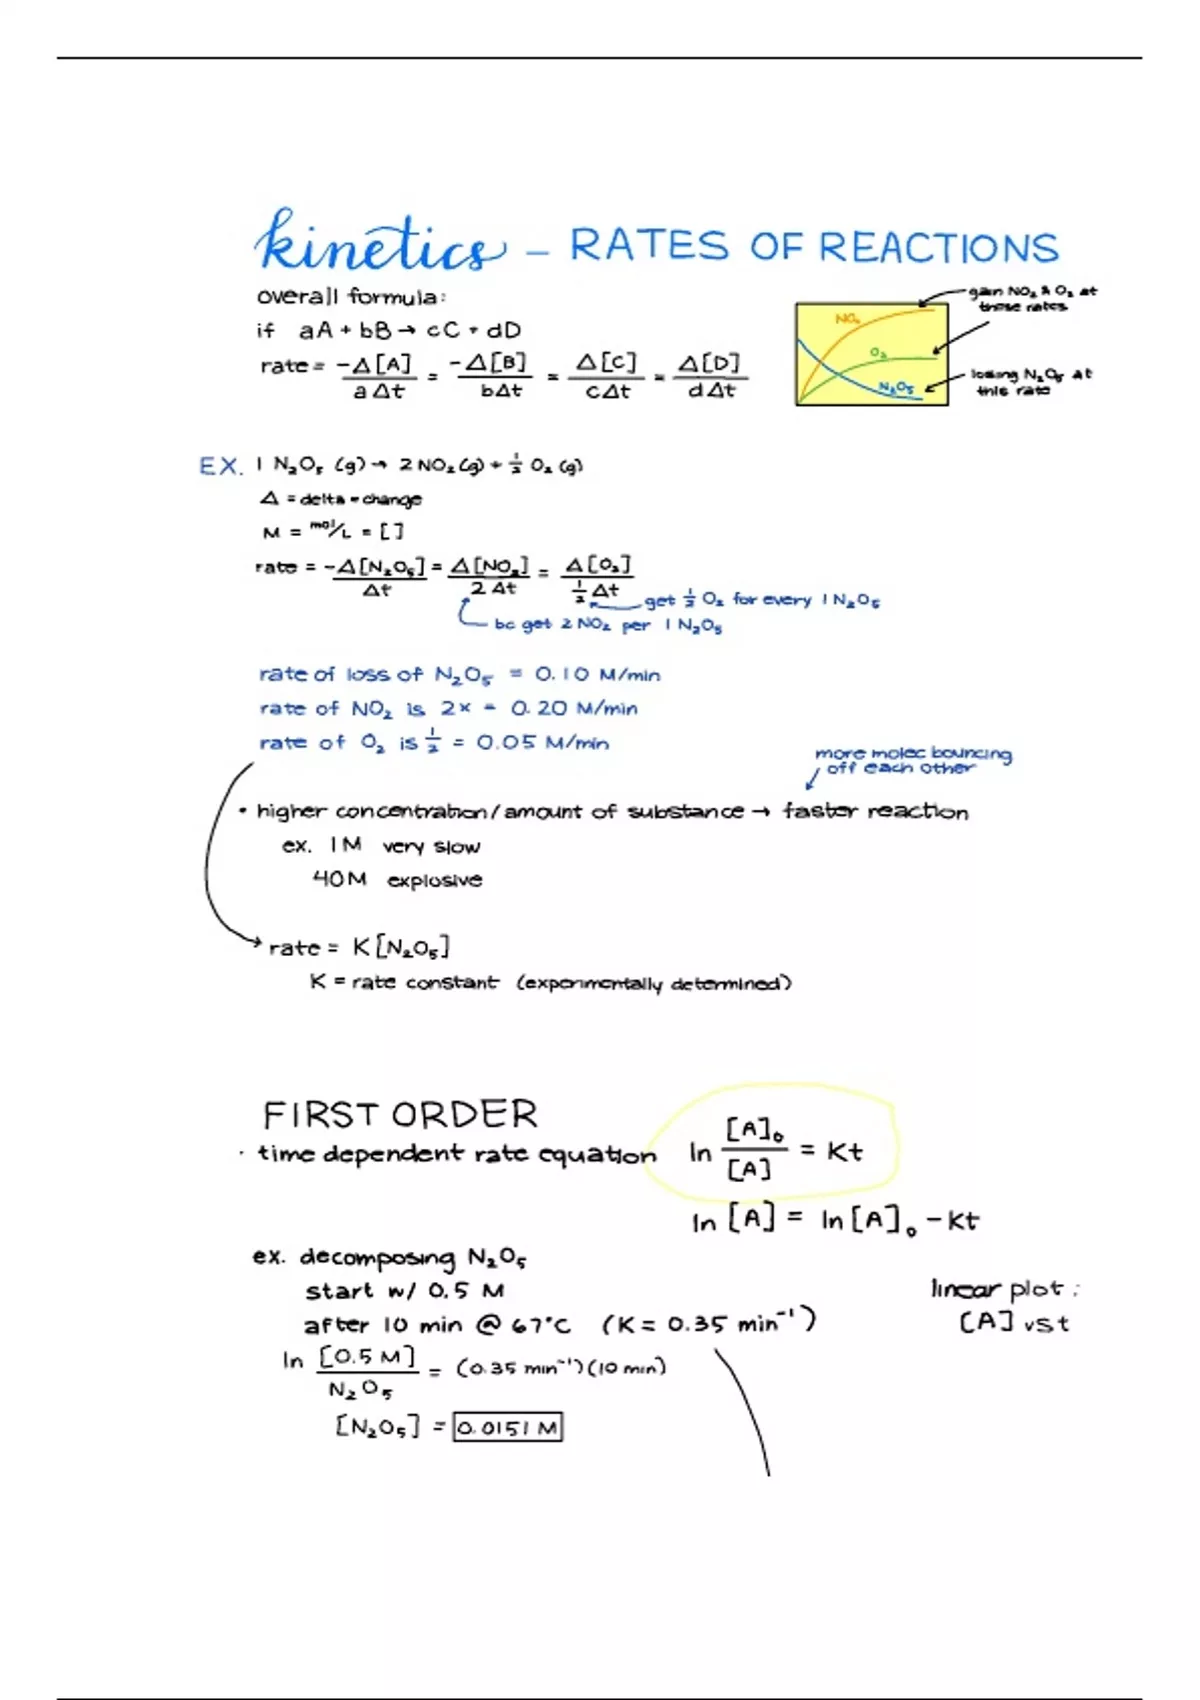 kinetics – RATES OF REACTIONS
overall formula:
if aA + bB → cC + dD
rate = -Δ[A]/aΔt = -Δ[B]/bΔt = Δ[C]/cΔt = Δ[D]/dΔt
gain NO₂ & O₂ at
these rates
NO₂
O₂
N₂O₅
losing N₂O₅ at
this rate
EX. 1 N₂O₅ (g) → 2 NO₂ (g) + ½ O₂ (g)
Δ = delta = change
M = mol/L = [ ]
rate = -Δ[N₂O₅]/Δt = Δ[NO₂]/2Δt = Δ[O₂]/½Δt
get ½ O₂ for every 1 N₂O₅
bc get 2 NO₂ per 1 N₂O₅
rate of loss of N₂O₅ = 0.10 M/min
rate of NO₂ is 2x = 0.20 M/min
rate of O₂ is ½ = 0.05 M/min
more molec bouncing
off each other
• higher concentration/amount of substance → faster reaction
ex. 1M very slow
40M explosive
rate = K[N₂O₅]
K = rate constant (experimentally determined)
FIRST ORDER
· time dependent rate equation ln [A]₀/[A] = Kt
ln [A] = ln[A]₀ - Kt
ex. decomposing N₂O₅
start w/ 0.5 M
after 10 min @ 67°C (K = 0.35 min⁻¹)
linear plot:
[A] vs t
ln [0.5 M]/N₂O₅ = (0.35 min⁻¹)(10 min)
[N₂O₅] = 0.0151 M